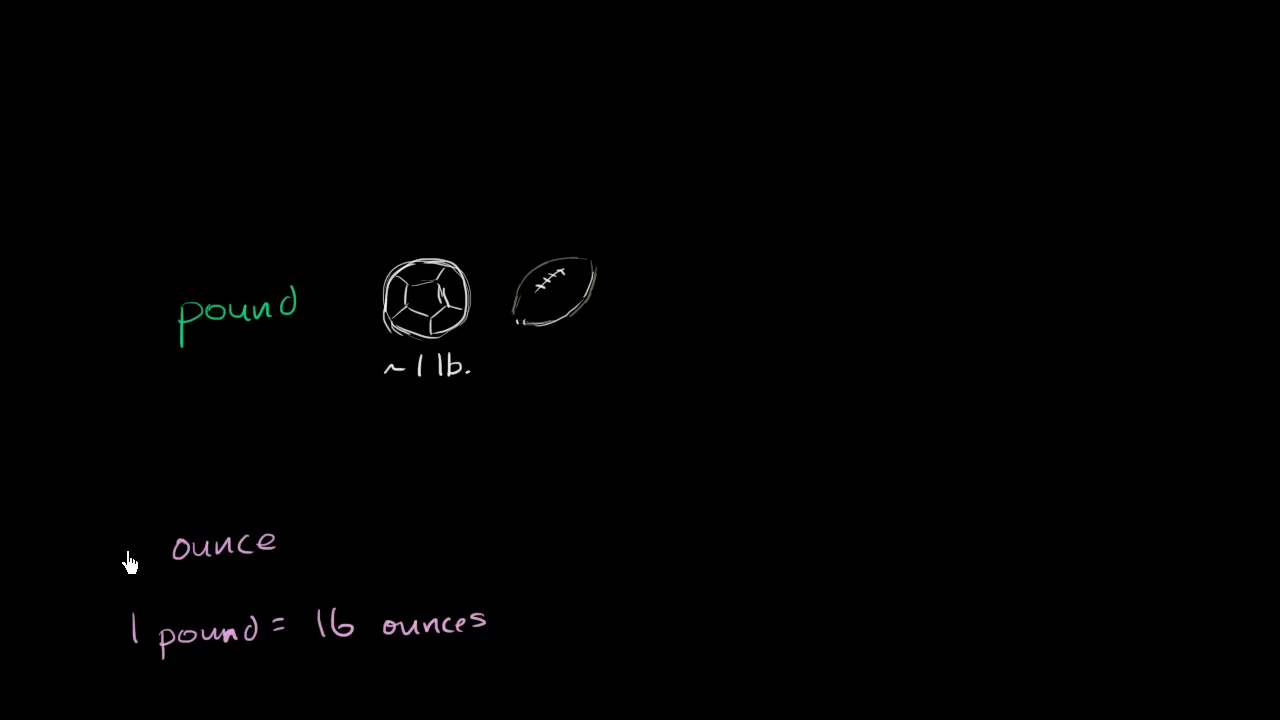 pound
~ 1 lb.
ounce
1 pound = 16 ounces